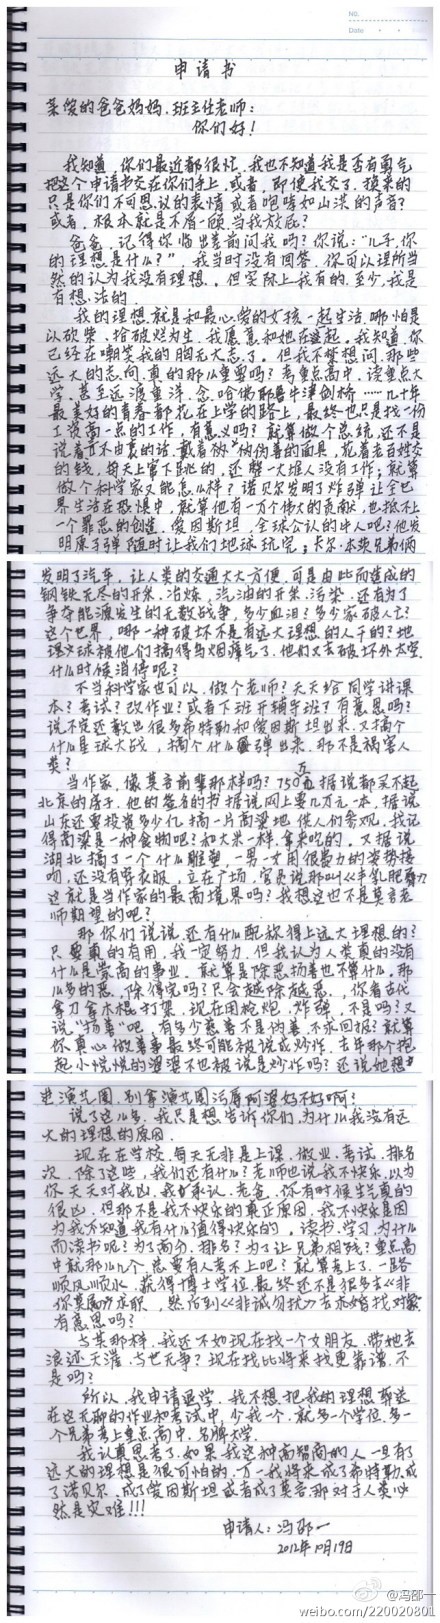 No.
Date
申请书
亲爱的爸爸妈妈、班主任老师：
你们好！
我知道，你们最近都很忙，我也不知道我是否有勇气
把这个申请书交在你们手上，或者，即使我交了，换来的
只是你们不可思议的表情或者咆哮如山洪的声音？
或者，根本就是不屑一顾，当我放屁？
爸爸，记得你临出差前问我吗？你说：“儿子，你
的理想是什么？”，我当时没有回答，你可以理所当
然的认为我没有理想。但实际上我有的，至少，我是
有想法的。
我的理想就是和最心爱的女孩一起生活，哪怕是
以砍柴、拾破烂为生，我愿意和她在一起。我知道，你
已经在嘲笑我的胸无大志了。但我不禁想问，那些
远大的志向，真的那么重要吗？考重点高中，读重点大
学，甚至远渡重洋，念哈佛耶鲁牛津剑桥……几十年
最美好的青春都花在上学的路上，最终也只是找一份
工资高一点的工作，有意义吗？就算做个总统，还不是
说着言不由衷的话，戴着
伪善的面具，花着老百姓交
的钱，每天上窜下跳的，还整一大堆人没有工作；就算
做个科学家又能怎么样？诺贝尔发明了炸弹让全世
界生活在恐惧中，就算他有一万个伟大的贡献，也抵不上
一个罪恶的创造，爱因斯坦，全球公认的牛人吧？他发
明原子弹随时让我们地球玩完；卡尔·本茨兄弟俩
发明了汽车，让人类的交通大大方便，可是由此而造成的
钢铁无尽的开采、冶炼，汽油的开采、污染，还有为了
争夺能源发生的无数战争，多少血泪？多少家破人亡？
这个世界，哪一种破坏不是有远大理想的人干的？地
球被他们搞得乌烟瘴气了，他们又去破坏外太空，
什么时候消停呢？
不当科学家也可以，做个老师？天天给同学讲课
本？考试？改作业？或者下班开辅导班了有意思吗？
说不定还教出很多希特勒和爱因斯坦出来，又搞个
什么星球大战，搞个什么弹出来，那不是祸害人
类？
当作家，像莫言前辈那样吗？750万据说都买不起
北京的房子，他的签名的书据说网上要几万元一本，据说
山东还要投资多少亿，搞一片高粱地，供人们参观，我记
得高粱是一种食物吧？和大米一样，拿来吃的。又据说
湖北搞了一个什么雕塑，一男一女用很费力的姿势接
吻，还没有穿衣服，立在广场，官员说那叫《丰乳肥臀》？
这就是当作家的最高境界吗？我想这也不是莫言老
师期望的吧？
那你们说说，还有什么配称得上远大理想的？
只要真的有用，我一定努力。但我认为人类真的没有
什么是崇高的事业。就算是除恶扬善也不算什么，那
么多的恶，除得完吗？只会越除越恶，你看古代
拿刀拿木棍打架，现在用枪炮、炸弹，不是吗？又
说“扬善”吧，有多少慈善不是伪善、不求回报？就算
你真心做善事最终可能被说成炒作。去年那个抱
起小悦悦的婆婆不也被说是炒作吗？还说她想
进演艺圈，别拿演艺圈污辱阿婆好不好啊？
说了这么多，我只是想告诉你们，为什么我没有远
大的理想的原因。
现在在学校，每天无非是上课、做业、考试、排名
次，除了这些，我们还有什么？老师也说我不快乐，以为
你天天对我凶，我承认，老爸，你有时候生气真的
很凶，但那不是我不快乐的真正原因，我不快乐是因
为我不知道我有什么值得快乐的。读书、学习，为什么
而读书呢？为了高分、排名？为了让兄弟相残？重点高
中就那么几个，总要有人考不上吧？就算考上了，一路
顺风顺水，获得博士学位，最终还不是很多去《非
你莫属》求职，然后到《非诚勿扰》去求婚找对象，
有意思吗？
与其那样，我还不如现在找一个女朋友，带她去
浪迹天涯，与世无争？现在找比将来找更靠谱，不
是吗？
所以，我申请退学，我不想把我的理想葬送
在这无聊的作业和考试中，少我一个，就多一个学位，多一
个兄弟考上重点高中、名牌大学。
我认真思考了，如果我这种高智商的人一旦有了
远大的理想是很可怕的，万一我将来成了希特勒，成
了诺贝尔，成了爱因斯坦或者成了莫言，那对于人类必
然是灾难！！！
申请人：冯邵一
2012年10月19日
@冯邵一
weibo.com/220020801